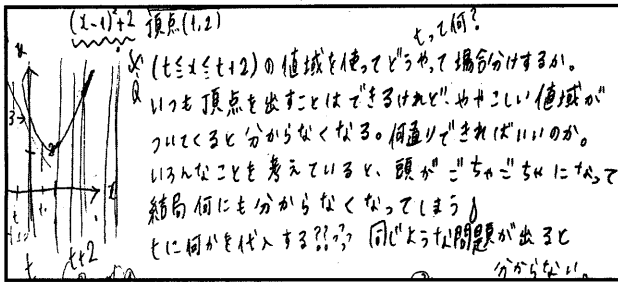 (x-1)²+2 頂点(1,2)
tって何?
(t≦x≦t+2)の値域を使ってどうやって場合分けするか。
いつも頂点を出すことはできるけれど、ややこしい値域が
ついてくると分からなくなる。何通りできればいいのか。
いろんなことを考えていると、頭がごちゃごちゃになって
結局何にも分からなくなってしまう
tに何かを代入する???? 同じような問題が出ると
分からない。
3
t
t+2
t